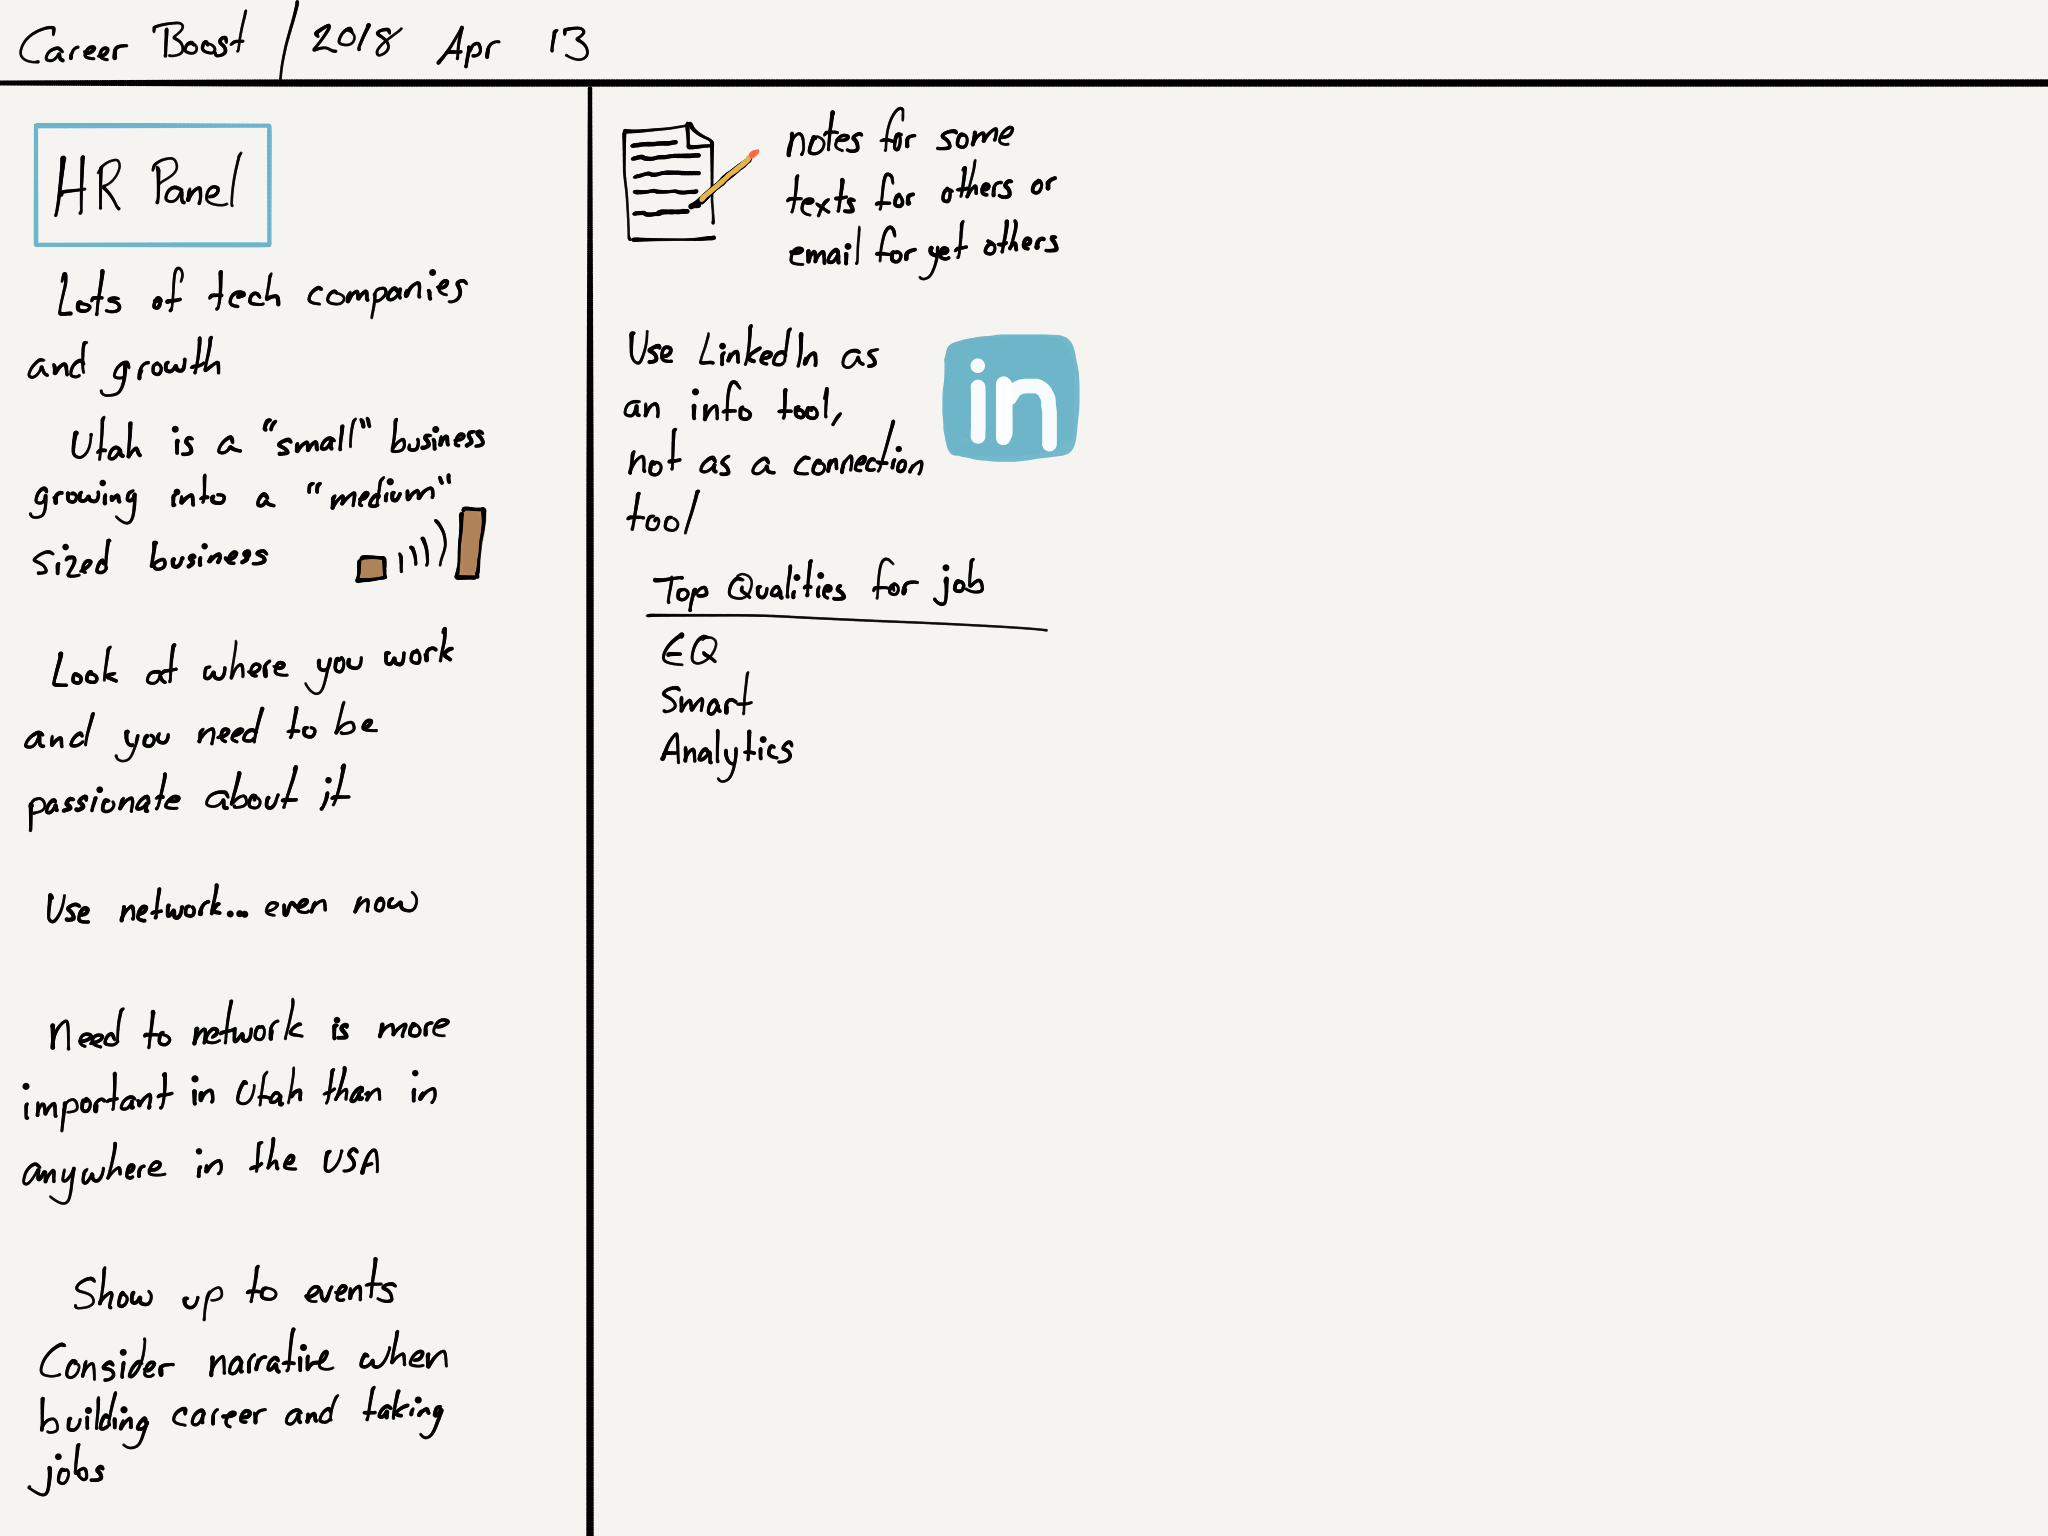 Career Boost / 2018 Apr 13
HR Panel
Lots of tech companies
and growth
Utah is a "small" business
growing into a "medium"
sized business
Look at where you work
and you need to be
passionate about it
Use network... even now
Need to network is more
important in Utah than in
anywhere in the USA
Show up to events
Consider narrative when
building career and taking
jobs
notes for some
texts for others or
email for yet others
Use LinkedIn as
an info tool,
not as a connection
tool
in
Top Qualities for job
EQ
Smart
Analytics